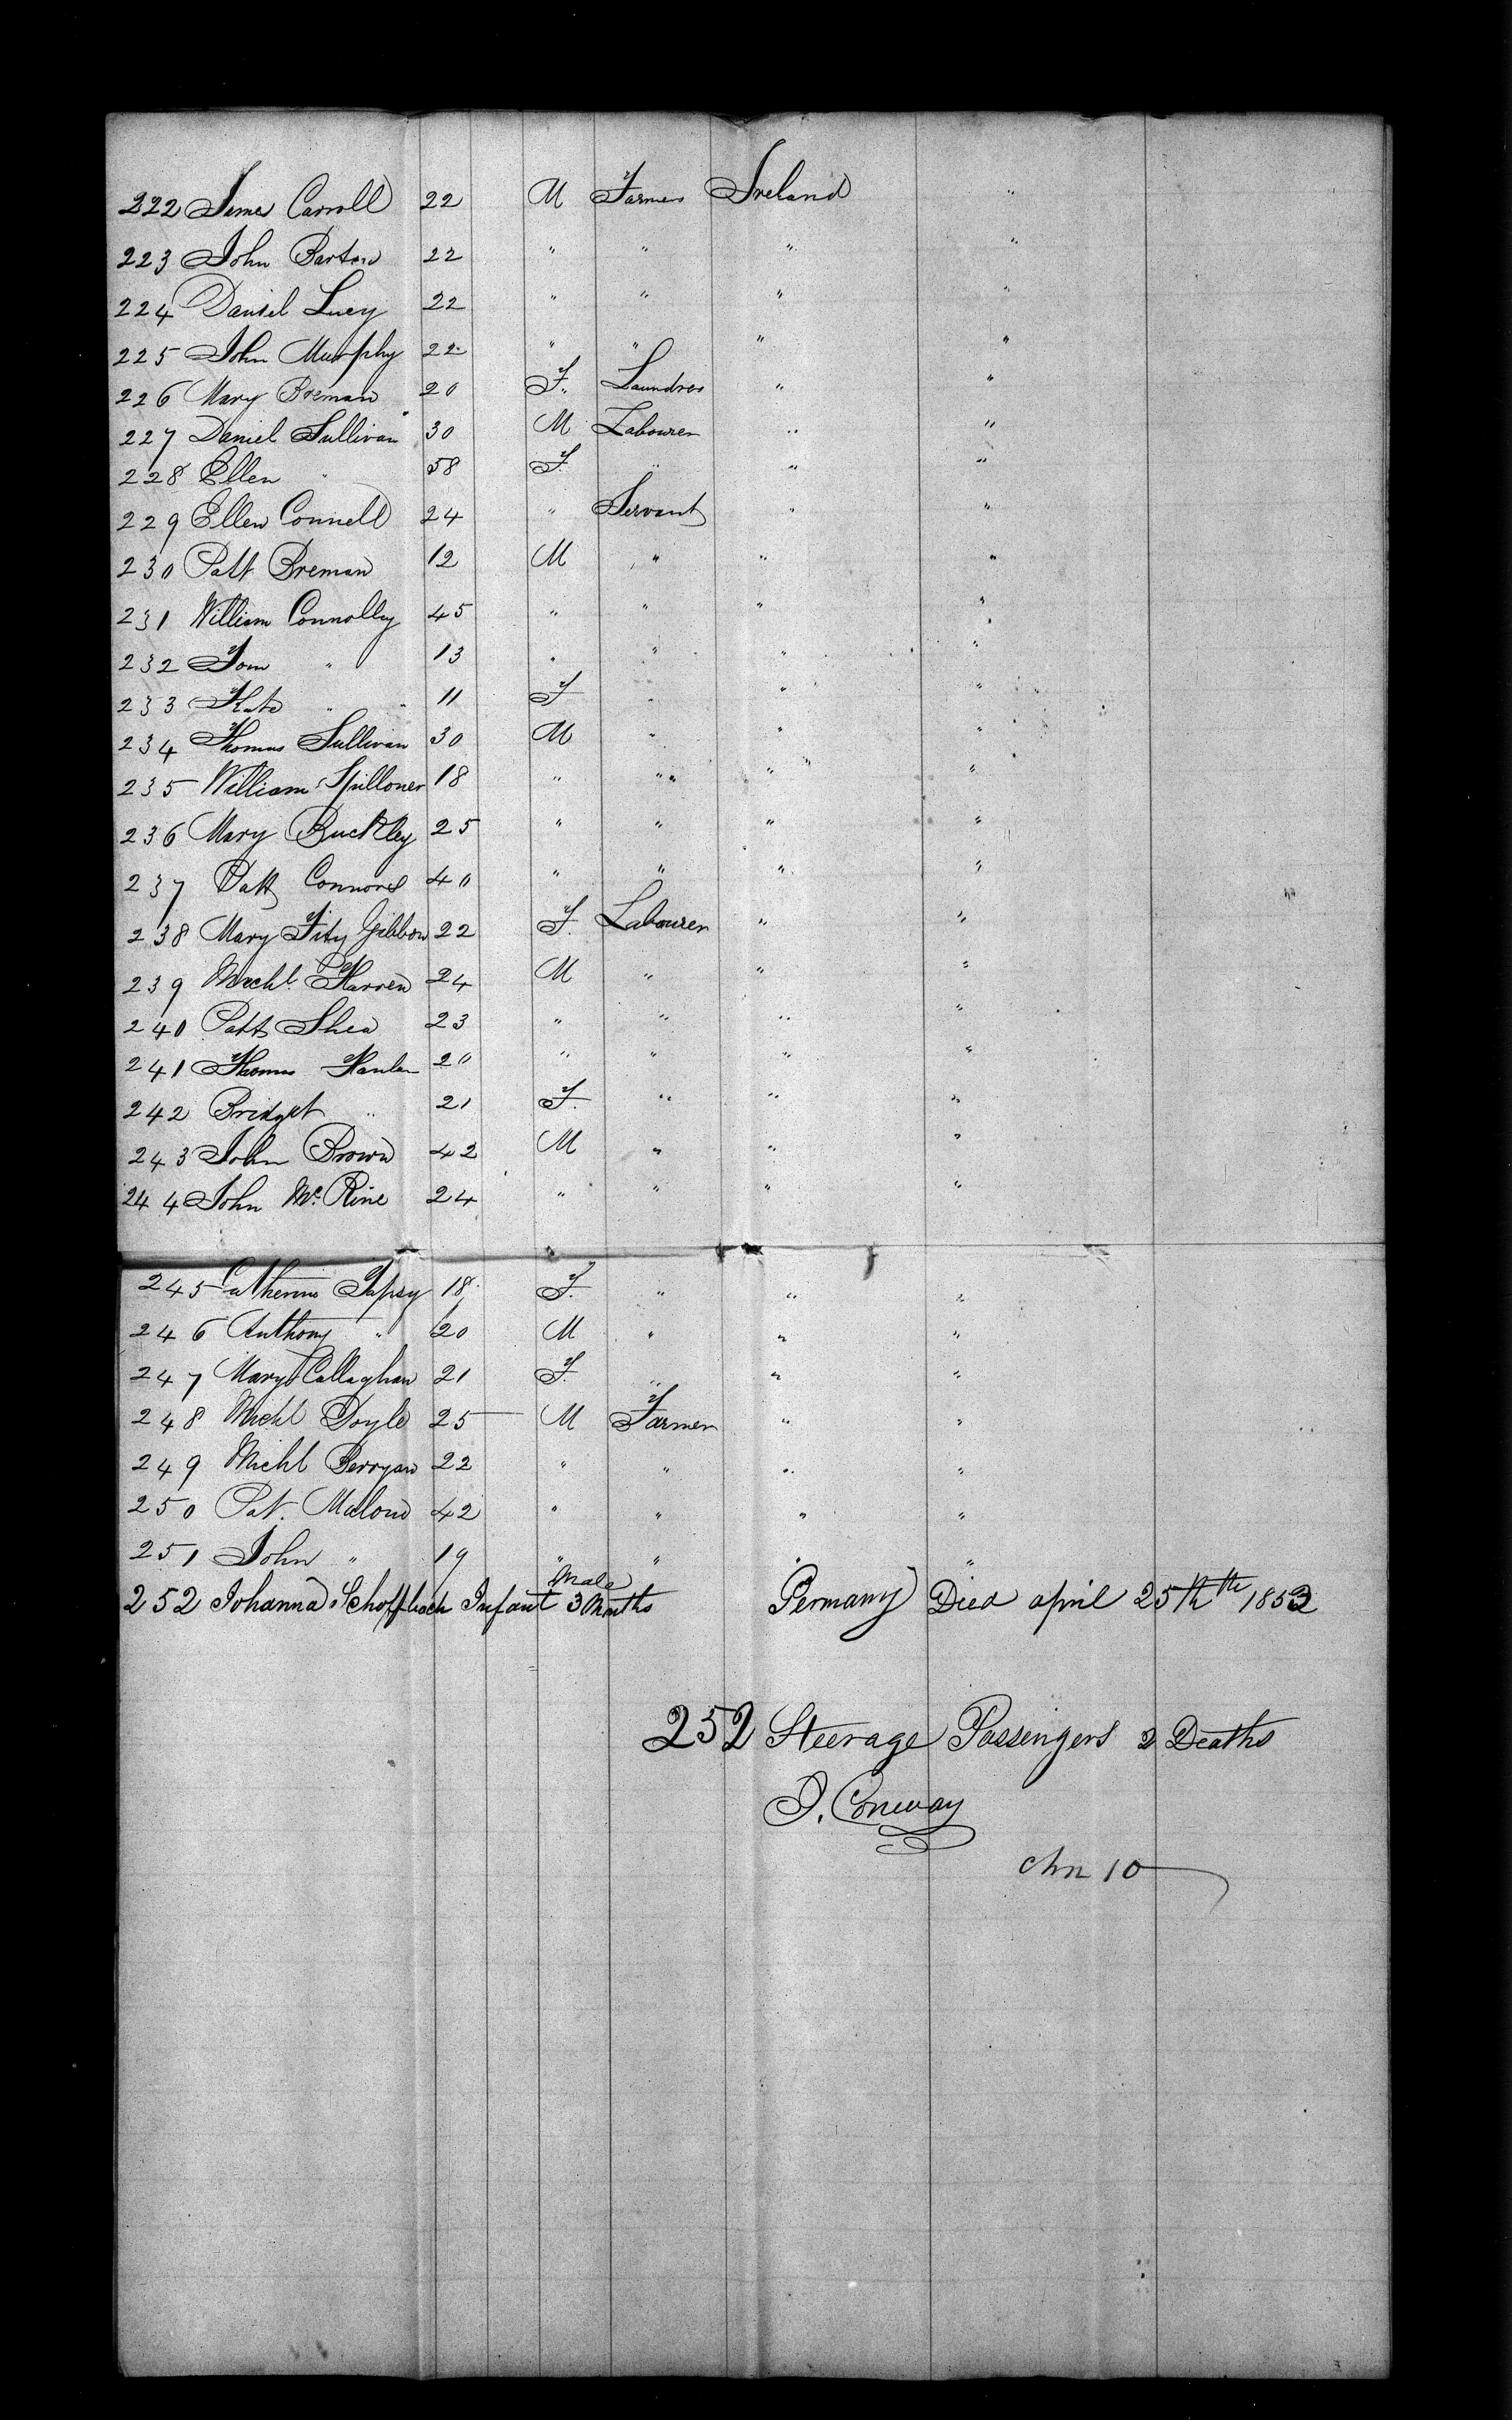 222 James Carroll 22 M Farmer Ireland "
223 John Barton 22 " " " "
224 Daniel Lucy 22 " " " "
225 John Murphy 22 " " " "
226 Mary Breman 20 F. Laundres " "
227 Daniel Sullivan 30 M Labourer " "
228 Ellen " 58 F. " " "
229 Ellen Connell 24 " Servant " "
230 Patt Breman 12 M " " "
231 William Connolly 45 " " " "
232 Tom " 13 " " " "
233 Kate " 11 F " " "
234 Thomas Sullivan 30 M " " "
235 William Spilloner 18 " " " "
236 Mary Buckley 25 " " " "
237 Patt Connors 40 " " " "
238 Mary Fitz Gibbon 22 F. Labourer " "
239 Michl. Harren 24 M " " "
240 Patt Shea 23 " " " "
241 Thomas Hanlen 20 " " " "
242 Bridget " 21 F. " " "
243 John Brown 42 M " " "
244 John Mc. Rine 24 " " " "
245 Catherine Tapsy 18 F. " " "
246 Anthony " 20 M " " "
247 Mary Callaghan 21 F. " " "
248 Michl Doyle 25 M Farmer " "
249 Michl Berryan 22 " " " "
250 Pat. Malone 42 " " " "
251 John " 19 " " " "
Male
252 Johanna Schoffbach Infant 3 Months Germany Died april 25th th 1853
252 Steerage Passengers 2 Deaths
J. Conway
chn 10